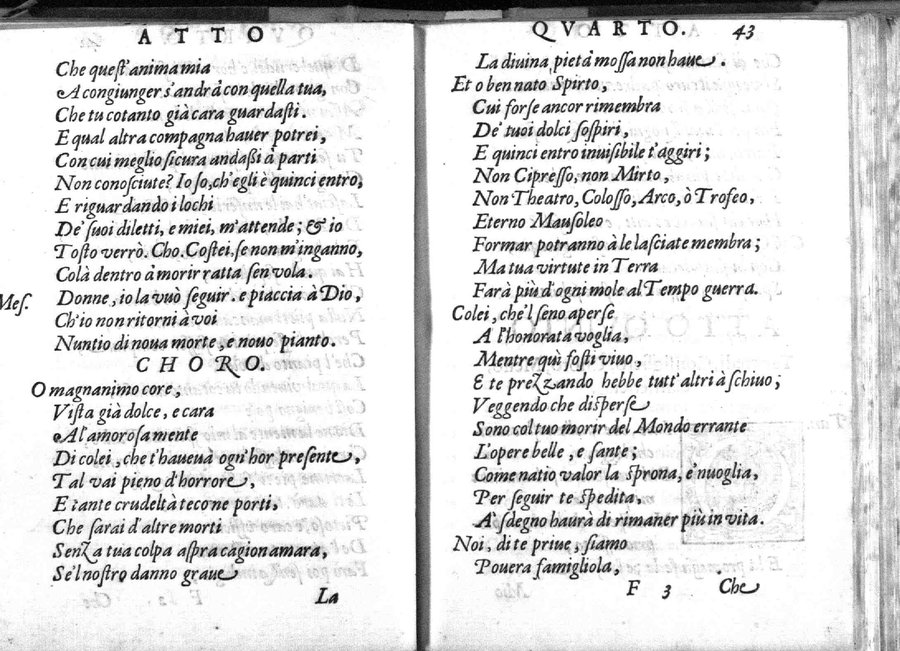 ATTO
Che quest'anima mia
A congiunger s'andrà con quella tua,
Che tu cotanto già cara guardasti.
E qual altra compagna hauer potrei,
Con cui meglio sicura andassi à parti
Non conosciute? Io so, ch'egli è quinci entro,
E riguardando i lochi
De' suoi diletti, e miei, m'attende; & io
Tosto verrò. Cho. Costei, se non m'inganno,
Colà dentro à morir ratta sen vola.
Mes. Donne, io la vuò seguir. e piaccia à Dio,
Ch'io non ritorni à voi
Nuntio di noua morte, e nouo pianto.
CHORO.
O magnanimo core,
Vista già dolce, e cara
Al'amorosa mente
Di colei, che t'haueua ogn'hor presente,
Tal vai pieno d'horrore,
E tante crudeltà teco ne porti,
Che sarai d'altre morti
Senza tua colpa aspra cagion amara,
Se'l nostro danno graue
La
QVARTO. 43
La diuina pietà mossa non haue.
Et o ben nato Spirto,
Cui forse ancor rimembra
De' tuoi dolci sospiri,
E quinci entro inuisibile t'aggiri;
Non Cipresso, non Mirto,
Non Theatro, Colosso, Arco, ò Trofeo,
Eterno Mausoleo
Formar potranno à le lasciate membra;
Ma tua virtute in Terra
Farà più d'ogni mole al Tempo guerra.
Colei, che'l seno aperse
A l'honorata voglia,
Mentre quì fosti viuo,
E te prezzando hebbe tutt'altri à schiuo;
Veggendo che disperse
Sono col tuo morir del Mondo errante
L'opere belle, e sante;
Come natio valor la sprona, e'nuoglia,
Per seguir te spedita,
A' sdegno haurà di rimaner più in vita.
Noi, di te priue, siamo
Pouera famigliola,
F 3 Che